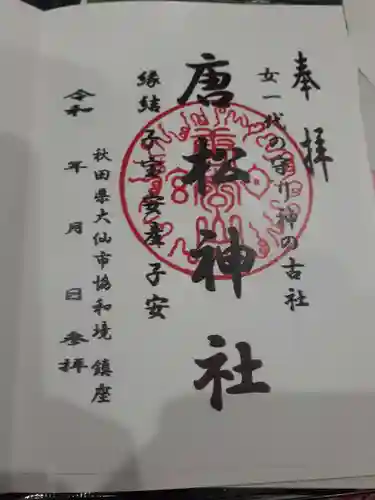 奉拝
女一代の守り神の古社
唐松神社
縁結 子宝 安産 子安
秋田県大仙市協和境 鎮座
令和 年 月 日 参拝